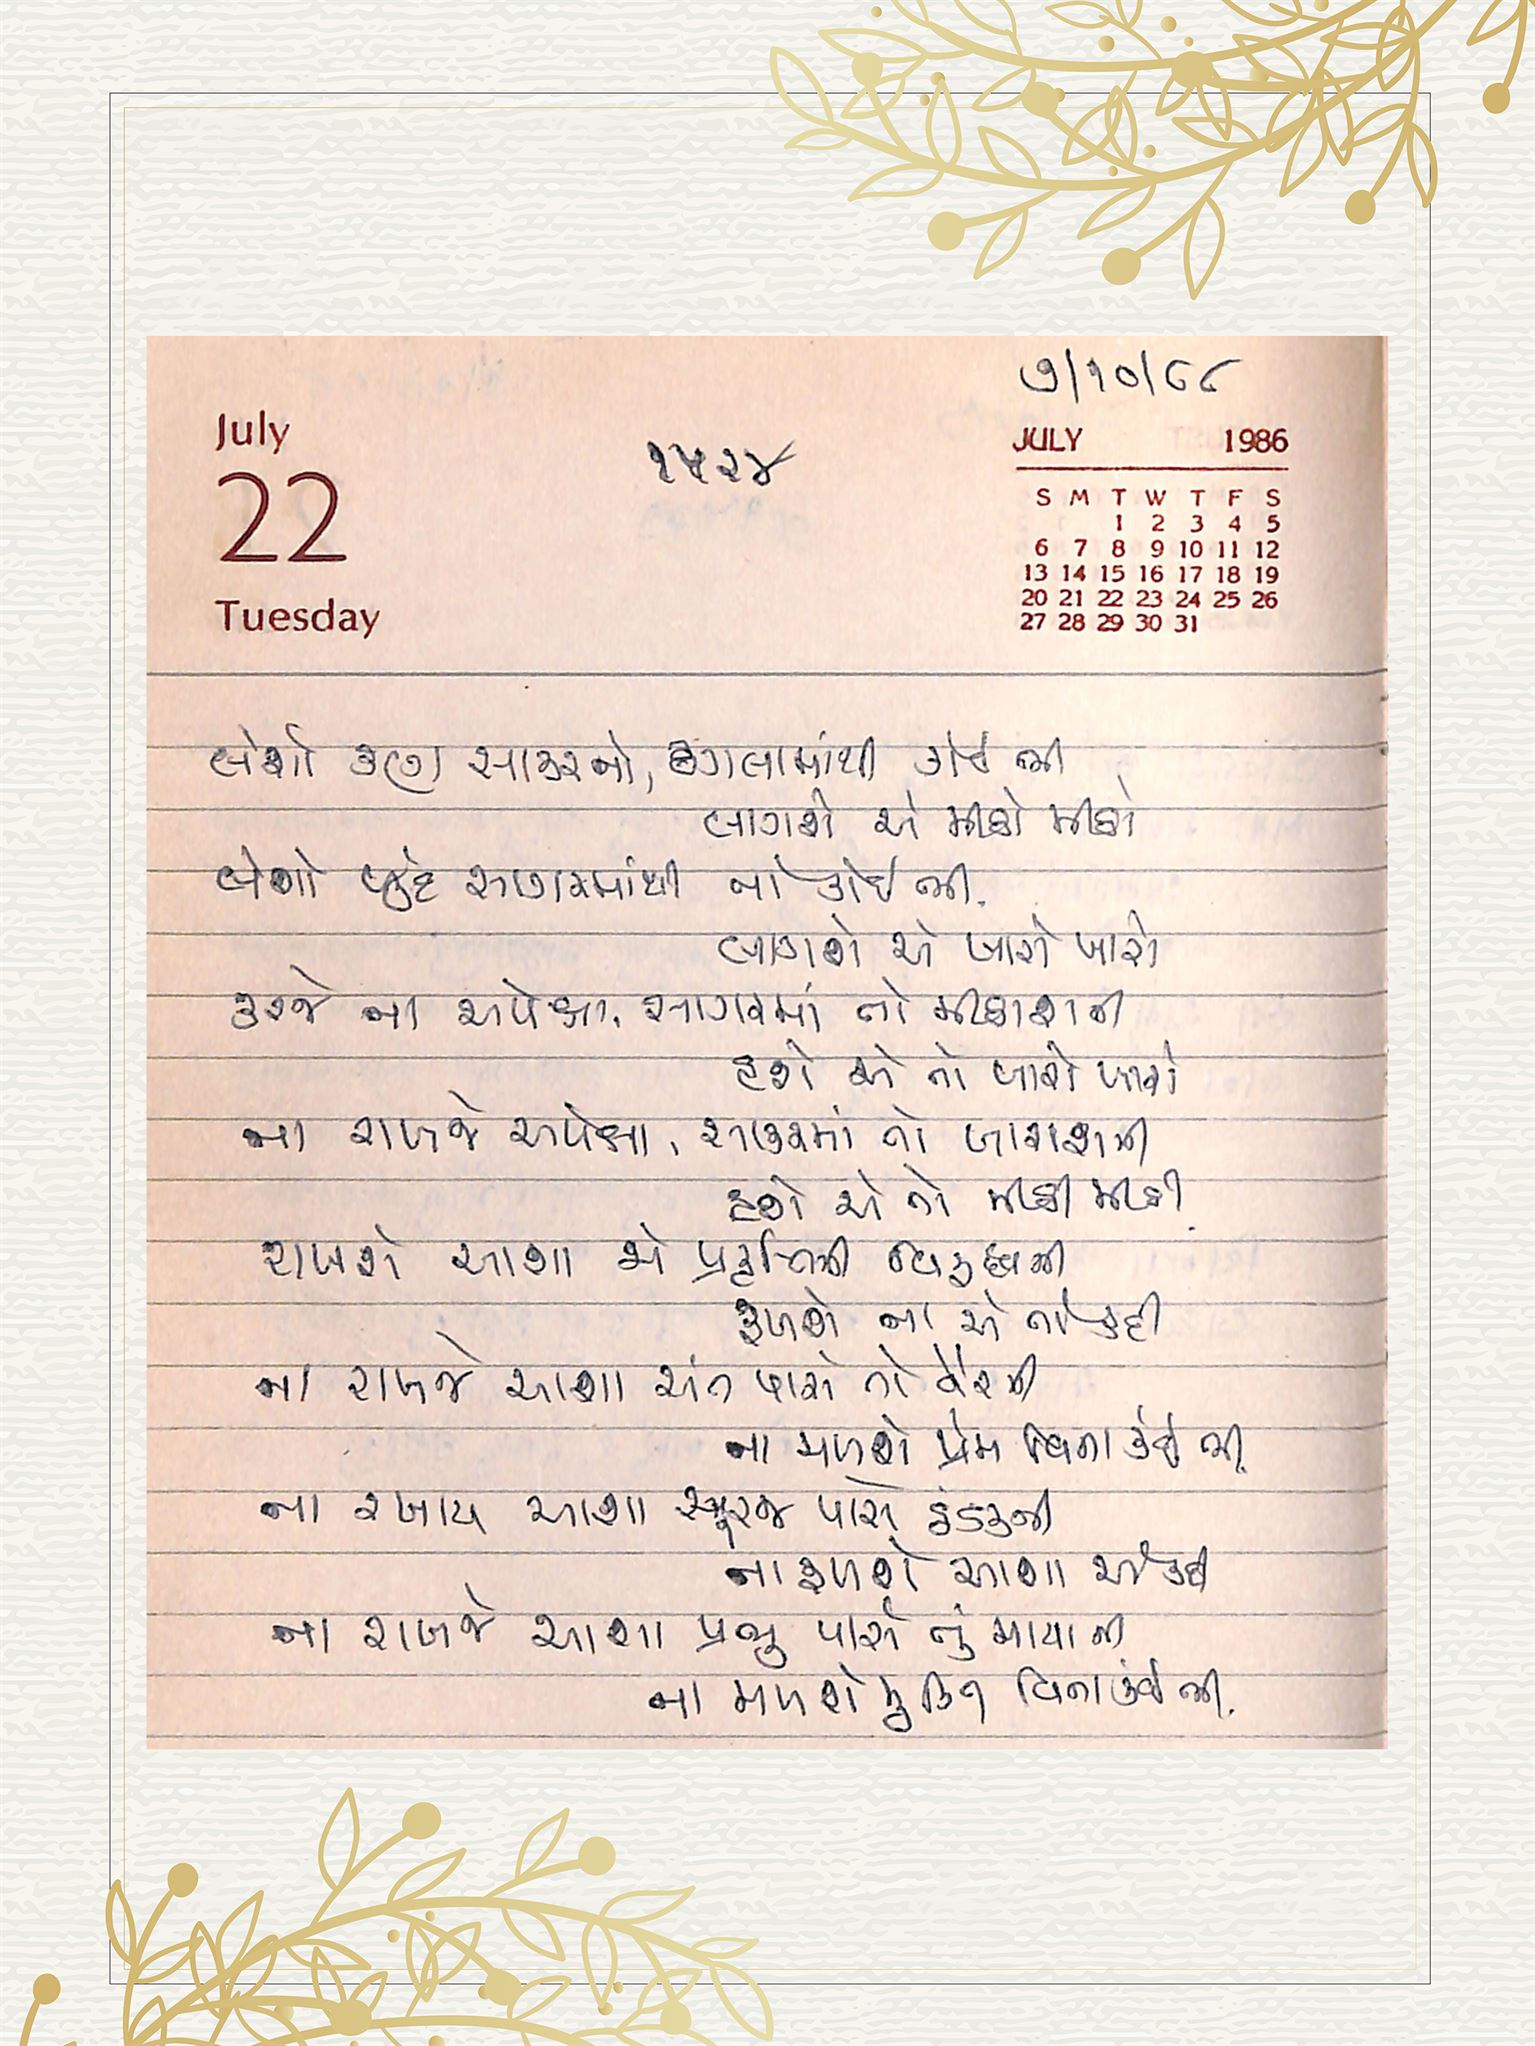 ૭/૧૦/૮૮
July
22
Tuesday
૧૫૨૪
JULY 1986
S M T W T F S
1 2 3 4 5
6 7 8 9 10 11 12
13 14 15 16 17 18 19
20 21 22 23 24 25 26
27 28 29 30 31
લેશો કણ સાકરનો, ઢગલામાંથી કોઈ ભી
લાગશે એ મીઠો મીઠો
લેશો બુંદ સાગરમાંથી તો કોઈ ભી.
લાગશે એ ખારો ખારો
કરજે ના અપેક્ષા, સાગરમાં તો મીઠાશની
હશે એ તો ખારો ખારો
ના રાખજે અપેક્ષા, સાકરમાં તો ખારાશની
હશે એ તો મીઠી મીઠી.
રાખશે આશા એ પ્રકૃતિની વિરુદ્ધની
ફળશે ના એ તો કદી
ના રાખજે આશા સંત પાસે તો વેરની
ના મળશે પ્રેમ વિના કંઈ ભી.
ના રખાય આશા સૂરજ પાસે ઠંડકની
ના ફળશે આશા એ કદી
ના રાખજે આશા પ્રભુ પાસે તું માયાની
ના મળશે મુક્તિ વિના કંઈ ભી.